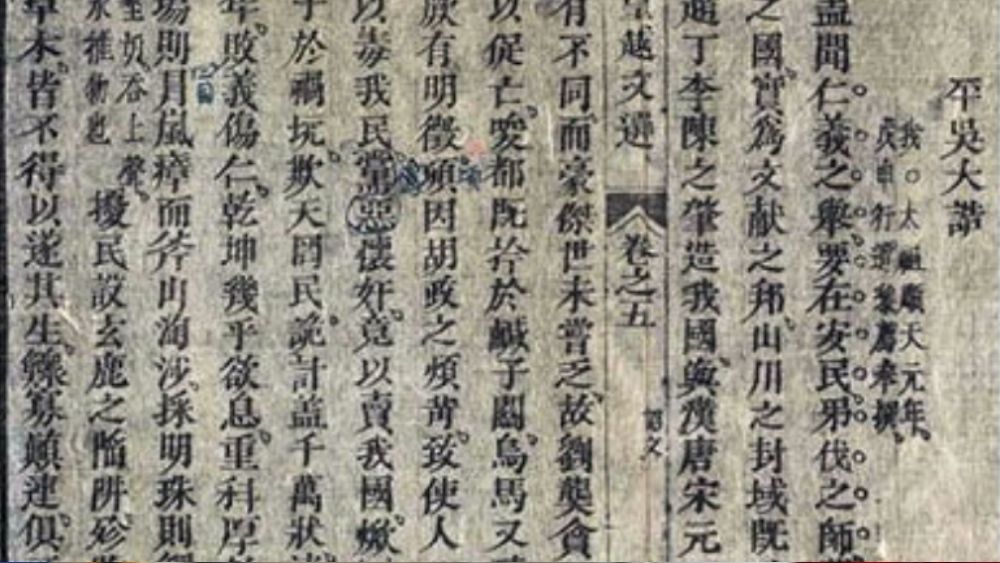 平吳大誥
我○太祖順天元年。
行遣奉撰。
盖聞仁義之舉要在安民弔伐之師
之國實爲文献之邦山川之封域既
趙丁李陳之肇造我國與漢唐宋元
皇越文選 卷之五 詔文
有不同而豪傑世未嘗乏故劉龑貪
以促亡唆都既擒於鹹子關烏馬又
厥有明徵頃因胡政之煩苛致使人
以毒我民黨惡懷奸竟以賣我國焮
子於禍坑欺天罔民詭計盖千萬狀
年敗義傷仁乾坤幾乎欲息重科厚
場則冒嵐瘴而斧山淘沙採明珠則
上聲
水推物也
擾民設玄鹿之陷阱殄
草木皆不得以遂其生鰥寡顛連俱